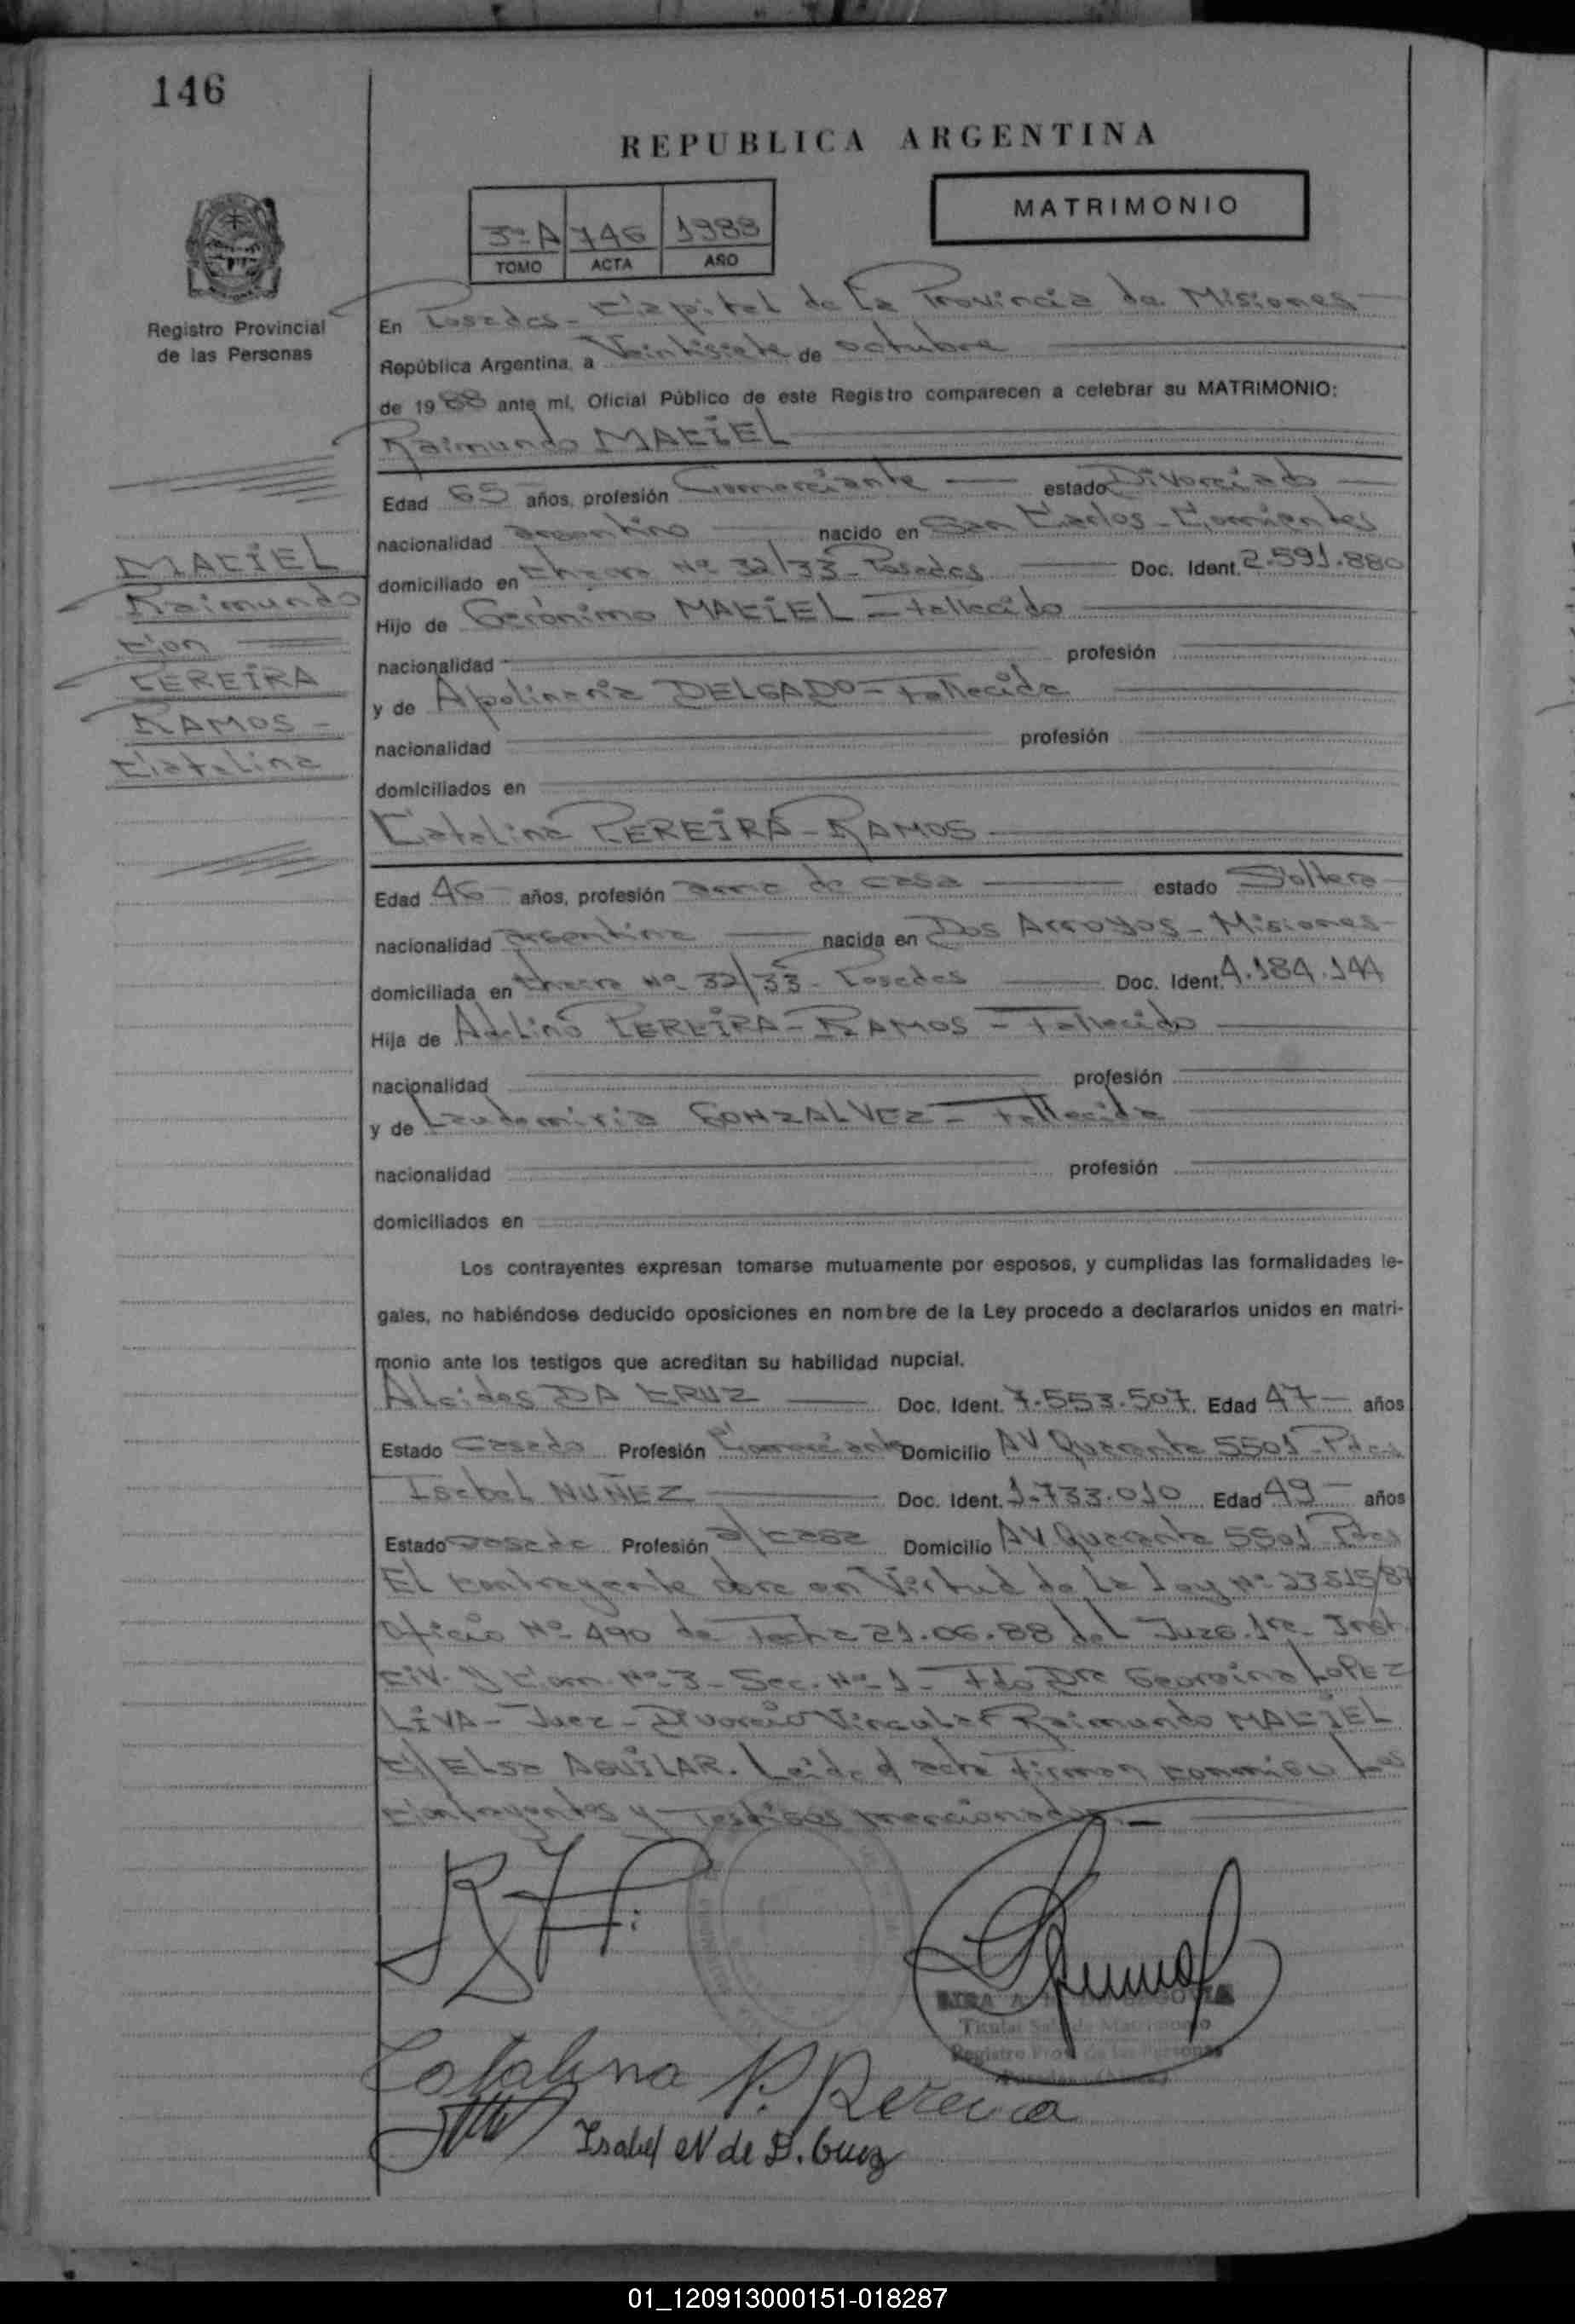 146
REPUBLICA ARGENTINA
MATRIMONIO
3º A 746 1988
TOMO ACTA AÑO
Registro Provincial
de las Personas
En Posadas - Capital de la Provincia de Misiones
República Argentina, a Veintisiete de octubre
de 1988 ante mí, Oficial Público de este Registro comparecen a celebrar su MATRIMONIO:
Raimundo MACIEL
Edad 65 años, profesión Comerciante estado Divorciado
nacionalidad argentino nacido en San Carlos - Corrientes
domiciliado en Chacra Nº 32/33 - Posadas Doc. Ident. 2.591.880
Hijo de Gerónimo MACIEL - Fallecido
nacionalidad profesión
y de Apolinaria DELGADO - Fallecida
nacionalidad profesión
domiciliados en
MACIEL
Raimundo
Con
PEREIRA
RAMOS -
Catalina
Catalina PEREIRA - RAMOS
Edad 46 años, profesión ama de casa estado Soltera
nacionalidad argentina nacida en Dos Arroyos - Misiones
domiciliada en Chacra Nº 32/33 - Posadas Doc. Ident. 4.184.144
Hija de Adelino PEREIRA - RAMOS - Fallecido
nacionalidad profesión
y de Laudomiria GONZALVEZ - Fallecida
nacionalidad profesión
domiciliados en
Los contrayentes expresan tomarse mutuamente por esposos, y cumplidas las formalidades le-
gales, no habiéndose deducido oposiciones en nombre de la Ley procedo a declararlos unidos en matri-
monio ante los testigos que acreditan su habilidad nupcial.
Alcides DA CRUZ Doc. Ident. 7.553.507 Edad 47 años
Estado Casado Profesión Comerciante Domicilio AV Quaranta 5501 - Pdas
Isabel NUÑEZ Doc. Ident. 1.733.010 Edad 49 años
Estado Casada Profesión a/casa Domicilio AV Quaranta 5501 Pdas
El contrayente obra en Virtud de la Ley Nº 23515/87
Oficio Nº 490 de Fecha 21.06.88 del Juzg. 1ra. Inst.
Civ. y Com. Nº 3 - Sec. Nº 1 - Fdo Dra Georgina LOPEZ
LIVA - Juez - Divorcio Vincular Raimundo MACIEL
C/ Elsa AGUILAR. Leida el acta Firman conmigo Los
Contrayentes y Testigos mencionados. -
Titular Sala de Matrimonio
Registro Prov. de las Personas
Catalina P. Pereira
Isabel N de D. Cruz
01_120913000151-018287